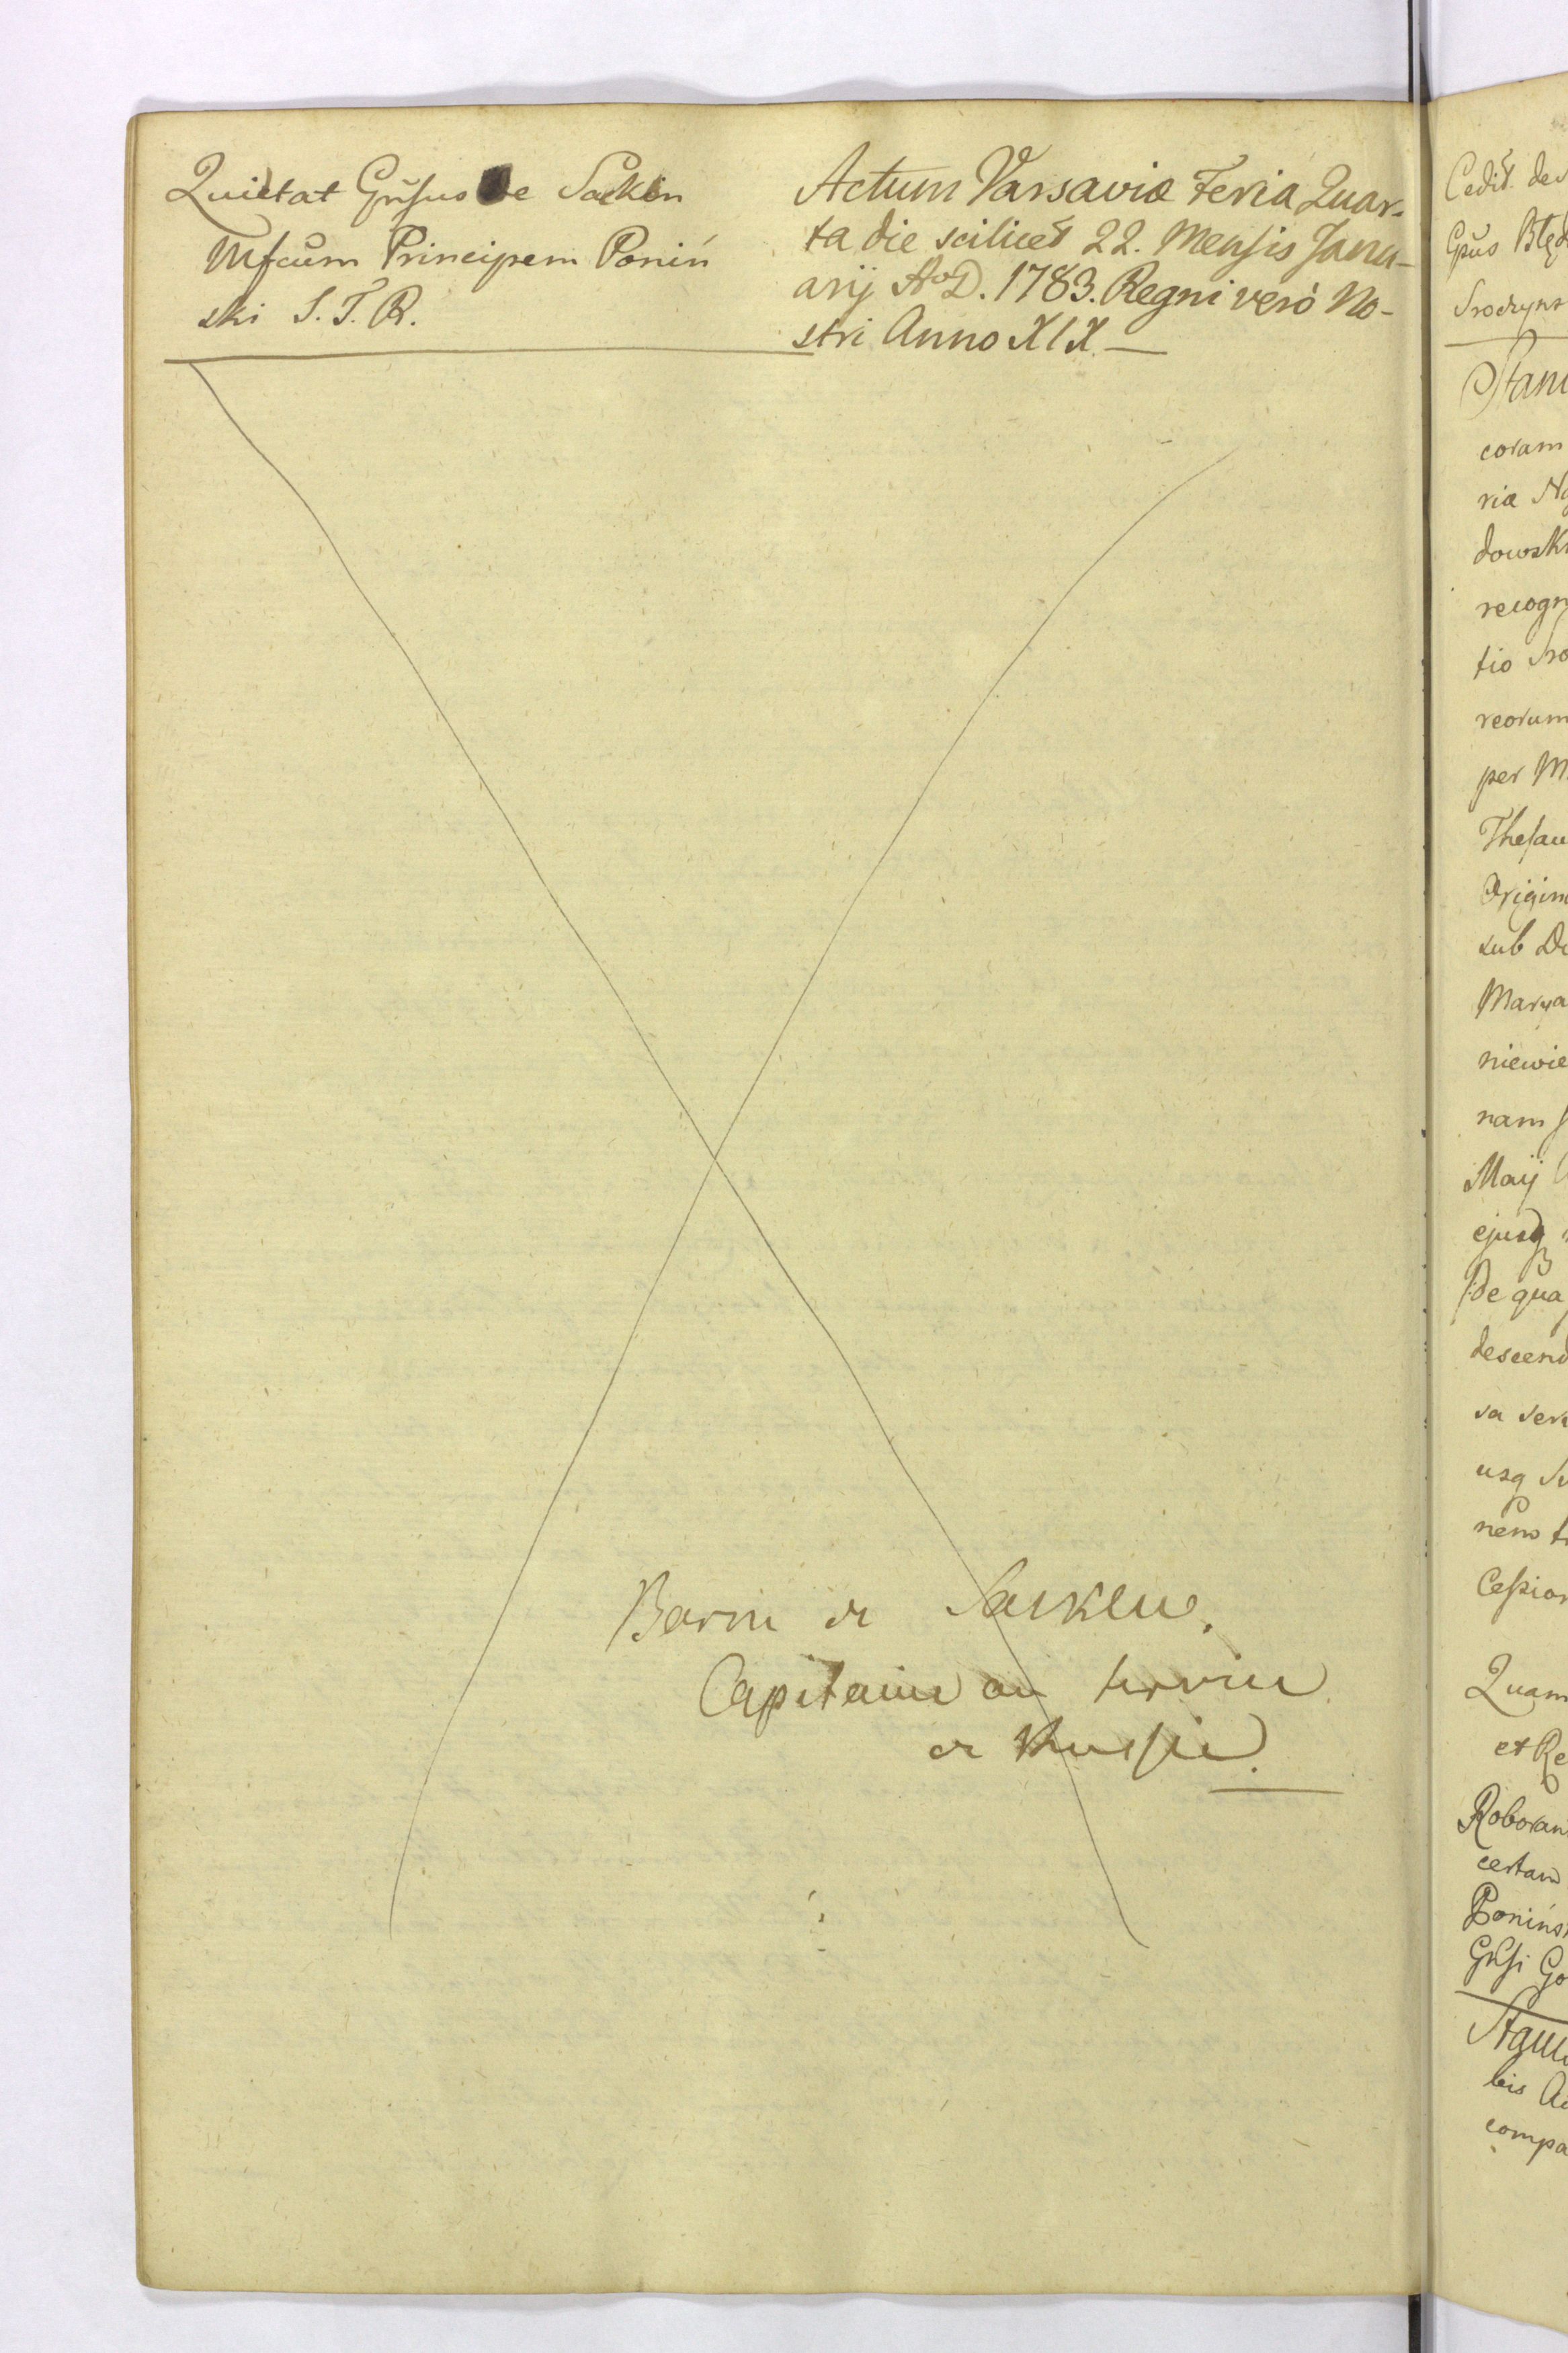 Quietat Gñsus de Sacken
Mfcum Principem Poniń
ski S. T. R.
Actum Varsaviæ Feria Quar-
ta die scilicet 22. Mensis Janu-
arij A͞o D. 1783. Regni verò No-
stri Anno XIX.
Baron de Sacken.
Capitaine au service
de Russie.
Cedit. de
Gñus Błęd
Sroczyns
Stani
coram
riæ
dowsk
recogn
tio Sro
reorum
per M
Thesau
Origin
sub
Marya
niewie
nam
Maij
ejusq
De qua
descend
sa
usq
nem
Cession
Quam
et Re
Roboran
certam
Ponińs
Gñsi Go
Stanis
bis
compa